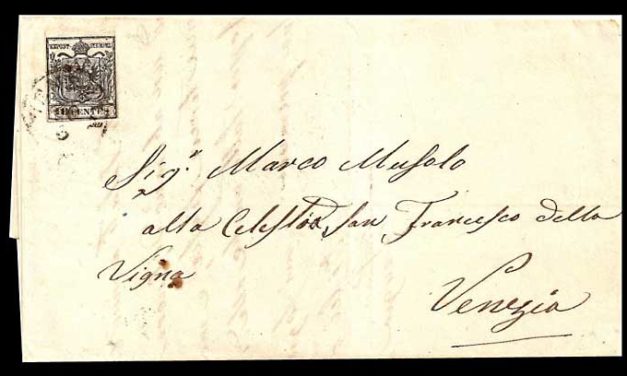 10 CENTES
Sig.r Marco Musolo
alla Celestia San Francesco della
Vigna
Venezia